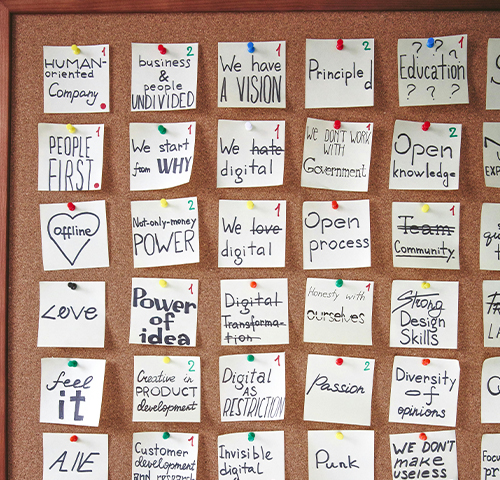 1
HUMAN-
oriented
Company.
2
business
&
people
UNDIVIDED
1
We have
A VISION
2
Principled
1
? ? ?
Education
? ? ?
1
PEOPLE
FIRST.
1
We start
from WHY
1
We hate
digital
1
We DON'T WORK
WITH
Government
2
Open
knowledge
offline
2
Not-only-money
POWER
1
We love
digital
Open
process
1
Team
Community.
Love
1
Power
of
idea
Digital
Transforma-
tion
1
Honesty with
ourselves
Strong
Design
Skills
feel
it
2
Creative in
PRODUCT
development
1
Digital
AS
RESTRICTION
2
Passion
Diversity
of
opinions
1
Customer
development
and research
Invisible
digital
Punk
WE DON'T
make
useless